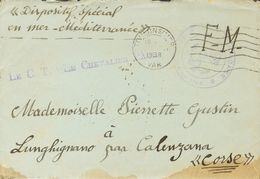 « Dispositif Spécial
en mer-Méditerranée »
F.M.
1938
VAR
LE C. T. LE CHEVALIER
Mademoiselle Pierrette Gustin
à
Lunghignano par Calenzana
« Corse »